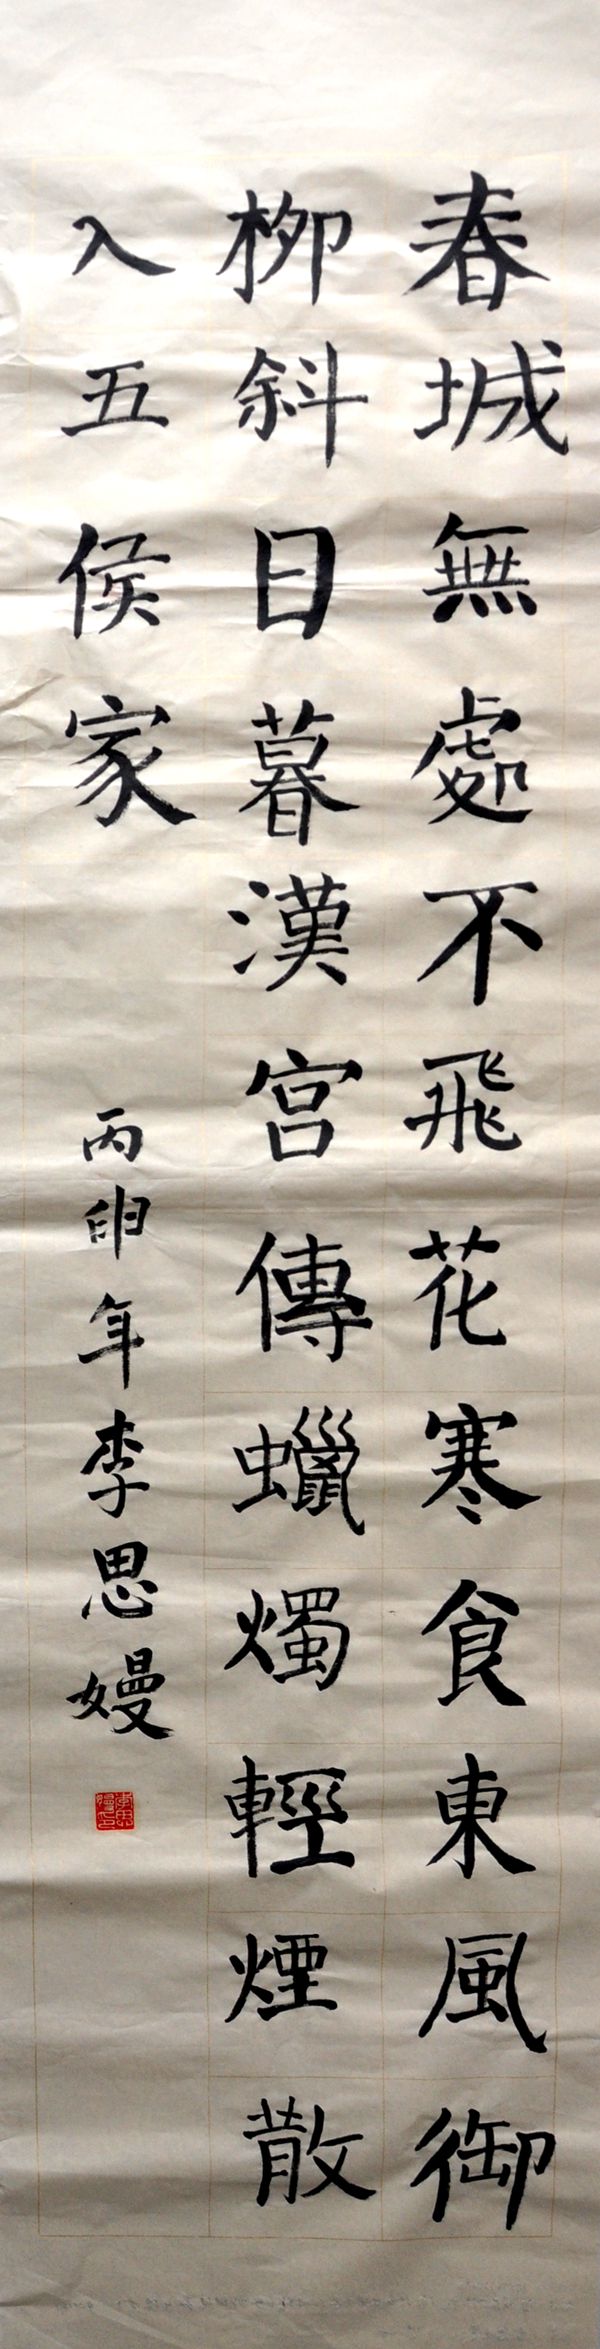 春城無處不飛花寒食東風御
柳斜日暮漢宮傳蠟燭輕煙散
入五侯家
丙卯年李思嫚